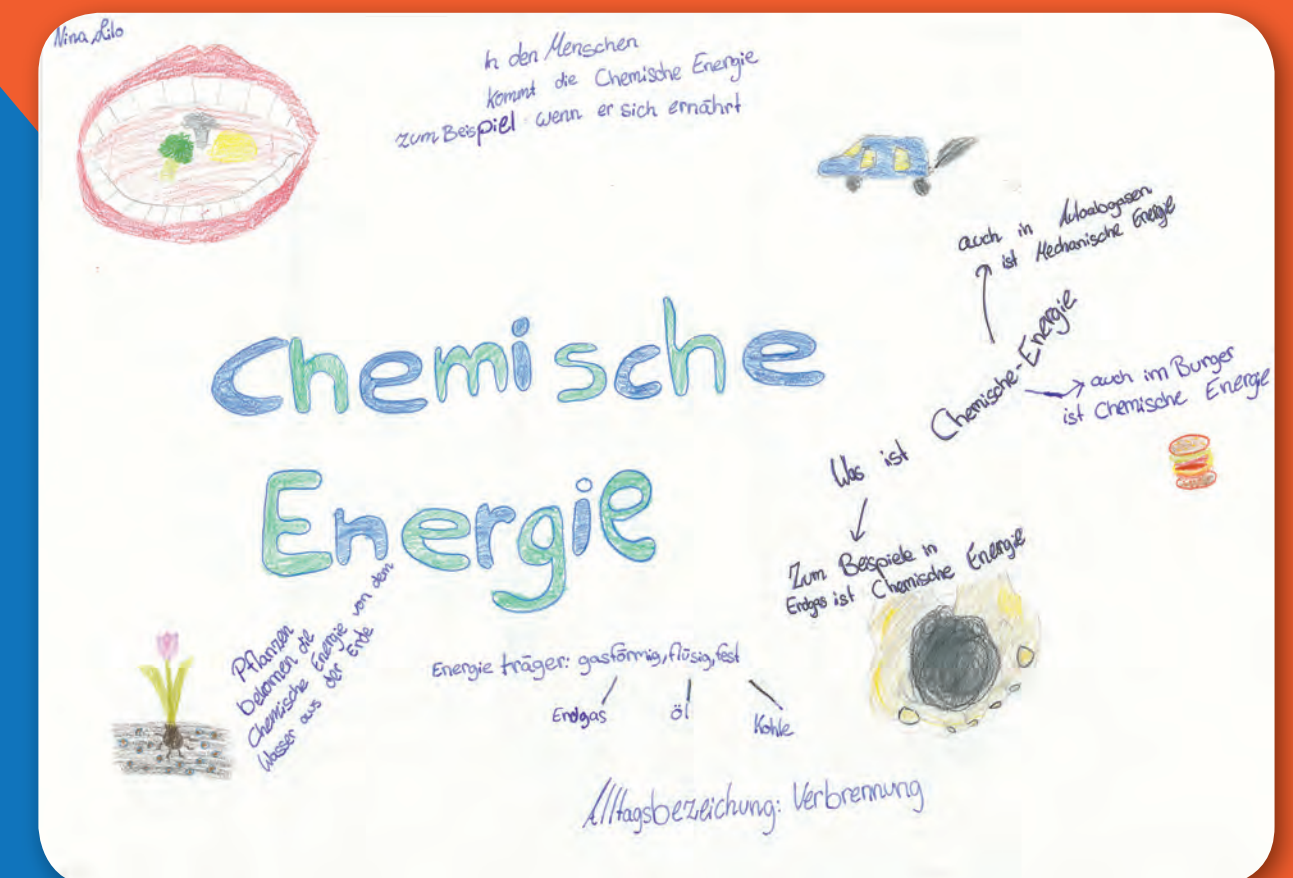 Nina, Lilo
In den Menschen
kommt die Chemische Energie
zum Beispiel wenn er sich ernährt
auch in Autoabgasen
ist Mechanische Energie
Chemische
Energie
Was ist Chemische-Energie
auch im Burger
ist Chemische Energie
Zum Bespiele in
Erdgas ist Chemische Energie
Pflanzen
bekomen die
Chemische Energie von dem
Wasser aus der Erde
Energie träger: gasförmig, flüsig, fest
Erdgas öl Kohle
Alltagsbezeichung: Verbrennung